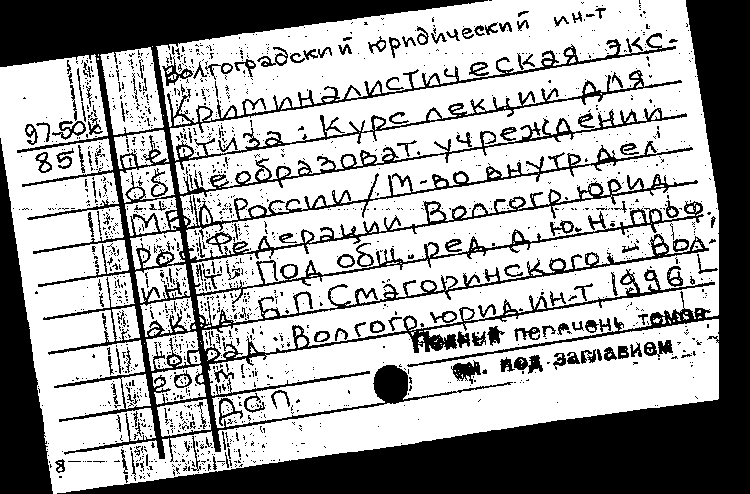 Волгоградский юридический ин-т
97-50к
85
Криминалистическая экс-
пертиза: Курс лекций для
общеобразоват. учреждений
МВД России / М-во внутр. дел
Рос. Федерации, Волгогр. юрид.
ин-т; Под общ. ред. д. ю. н., проф.,
акад. Б.П. Смагоринского. – Вол-
гоград: Волгогр. юрид. ин-т, 1996. –
20 см
ДСП.
Полный перечень томов
см. под заглавием
8